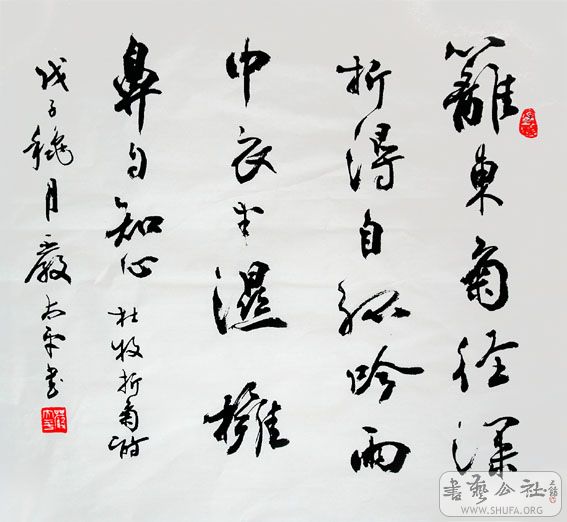 籬東菊徑深
折得自孤吟雨
中衣半濕擁
鼻自知心 杜牧折菊詩
戊子穐月嚴平書
書藝公社
WWW.SHUFA.ORG